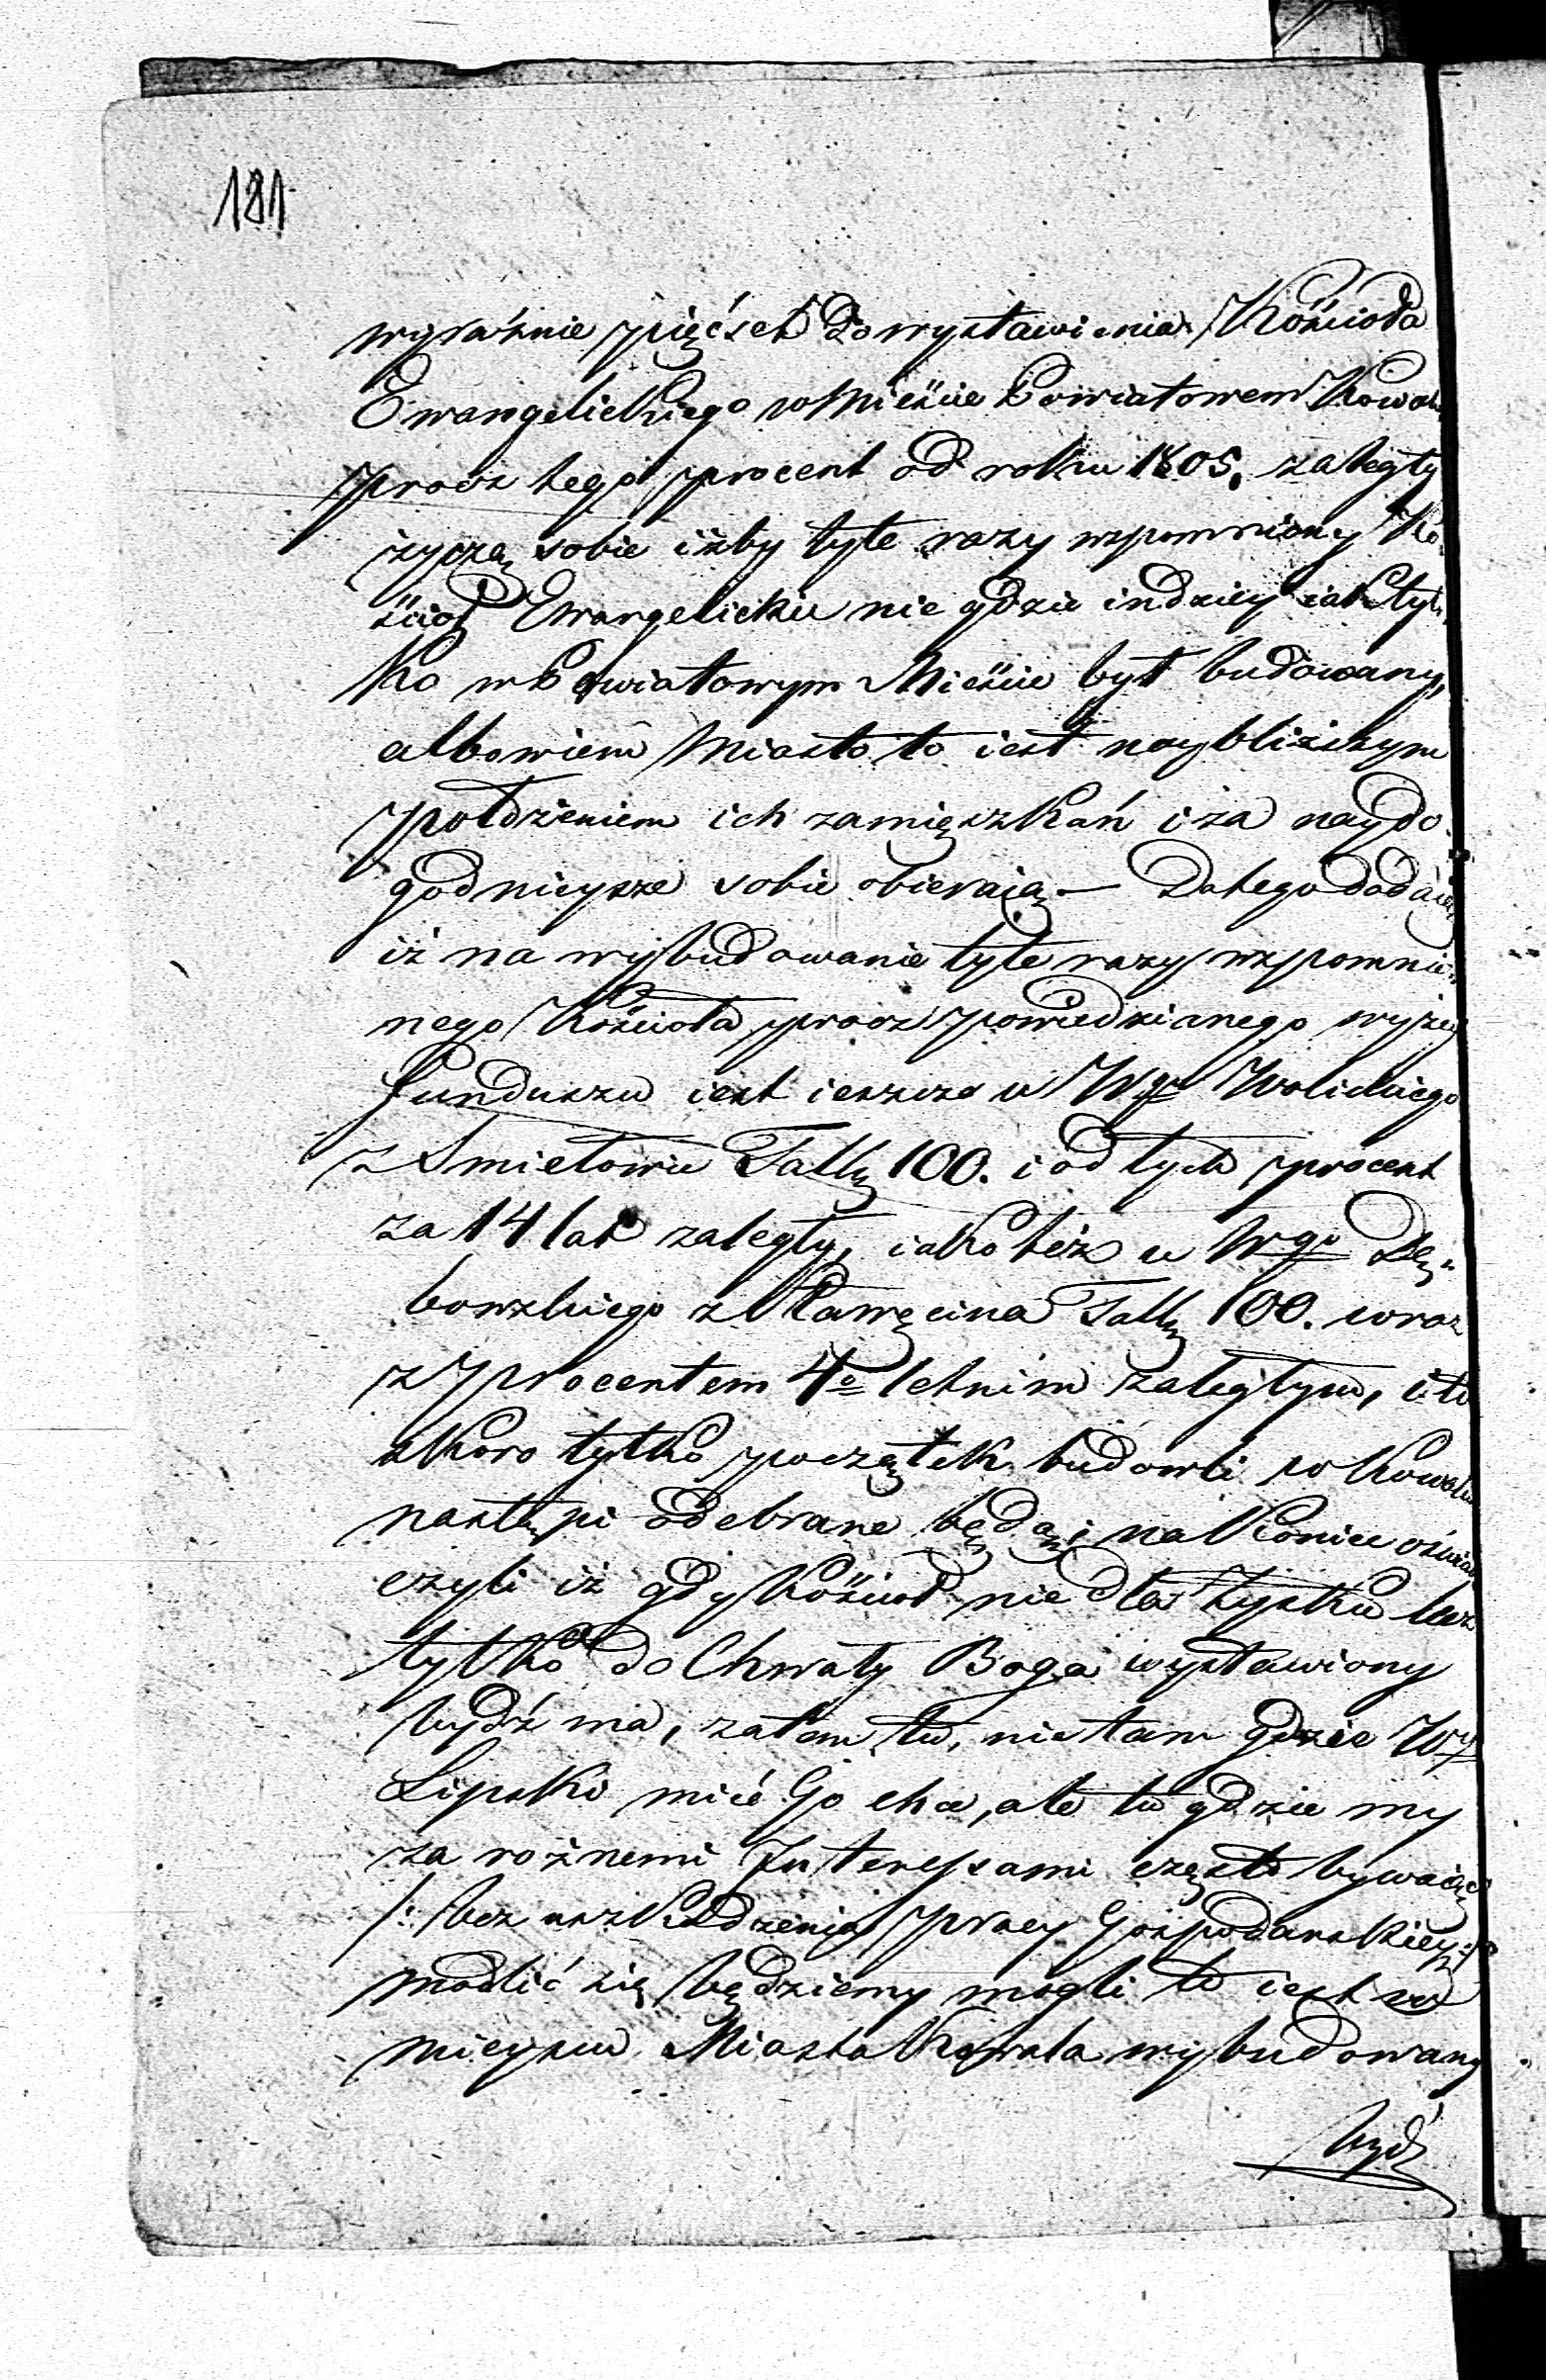 181
wyraźnie pięćset do wystawienia Kościoła
Ewangelickiego w Mieście Powiatowem Kowal
procz tego procent od roku 1805. zaległy
życzą sobie iżby tyle razy wspomniony Ko-
ścioł Ewangelicki nie gdzie indziey iak tyl-
ko w Powiatowym Mieście był budowany,
albowiem Miasto to iest naybliższym
położeniem ich zamięszkań i za naydo-
godnieysze sobie obieraią — Do tego dodaią
iż na wybudowanie tyle razy wspomnio-
nego Kościoła procz powiedzianego wyżey
funduszu iest ieszcze u Wgo Wolickiego
z Smiełowic Tall 100. i od tych procent
za 14 lat zaległy, iako też u Wgo Dę-
bowskiego z Kawęcina Tall 100. wraz
z procentem 4o letnim zaległym, i to
skoro tylko początek budowli w Kowalu
nastąpi odebrane będą, i na koniec oświad-
czyli iż gdy Kościoł nie dla zysku lecz
tylko do Chwały Boga wystawiony
bydź ma, zatem tu, nie tam gdzie Wy
Lipski mieć Go chce, ale tu gdzie my
za rożnemi Interessami często bywaiąc
/: bez uszkodzenia pracy Gospodarskiey :/
modlić się będziemy mogli to iest w
mieyscu Miasta Kowala wybudowany
bydź